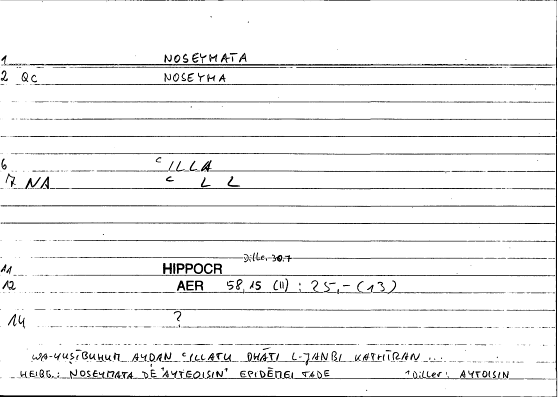 1 NOSEYMATA
2 QC NOSEYMA
6 ᶜILLA
7 NA ᶜ L L
Diller 30.7
11 HIPPOCR
12 AER 58,15 (11) : 25,-(13)
14 ?
WA-YUṢĪBUHUM AYḌAN ᶜILLATU DHĀTI L-JANBI KATHĪRAN ...
HEIBG.: NOSEYMATA DÈ *AYTEOISIN* EPIDĒMEI TADE *Diller: AYTOISIN